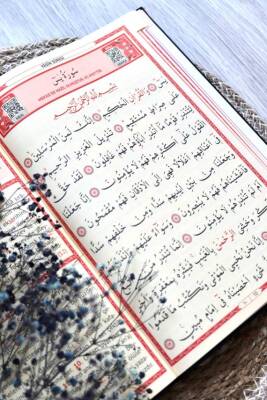 سُورَةُ يٰسٓ
بِسْمِ اللّٰهِ الرَّحْمٰنِ الرَّحِيمِ
يٰسٓ ۝ وَالْقُرْاٰنِ الْحَكِيمِ ۝ اِنَّكَ لَمِنَ الْمُرْسَلِينَ ۝
عَلٰى صِرَاطٍ مُسْتَقِيمٍ ۝ تَنْزِيلَ الْعَزِيزِ الرَّحِيمِ ۝
لِتُنْذِرَ قَوْمًا مَٓا اُنْذِرَ اٰبَٓاؤُهُمْ فَهُمْ غَافِلُونَ ۝ لَقَدْ حَقَّ
الْقَوْلُ عَلٰٓى اَكْثَرِهِمْ فَهُمْ لَا يُؤْمِنُونَ ۝ اِنَّا جَعَلْنَا
فِٓى اَعْنَاقِهِمْ اَغْلَالًا فَهِىَ اِلَى الْاَذْقَانِ فَهُمْ مُقْمَحُونَ ۝
وَجَعَلْنَا مِنْ بَيْنِ اَيْدِيهِمْ سَدًّا وَمِنْ خَلْفِهِمْ سَدًّا
فَاَغْشَيْنَاهُمْ فَهُمْ لَا يُبْصِرُونَ ۝ وَسَوَٓاءٌ عَلَيْهِمْ ءَاَنْذَرْتَهُمْ
اَمْ لَمْ تُنْذِرْهُمْ لَا يُؤْمِنُونَ ۝ اِنَّمَا تُنْذِرُ مَنِ اتَّبَعَ الذِّكْرَ
وَخَشِىَ الرَّحْمٰنَ بِالْغَيْبِ فَبَشِّرْهُ بِمَغْفِرَةٍ وَاَجْرٍ كَرِيمٍ ۝
اِنَّا نَحْنُ نُحْيِى الْمَوْتٰى وَنَكْتُبُ مَا قَدَّمُوا وَاٰثَارَهُمْ وَكُلَّ
شَىْءٍ اَحْصَيْنَاهُ فِٓى اِمَامٍ مُبِينٍ ۝